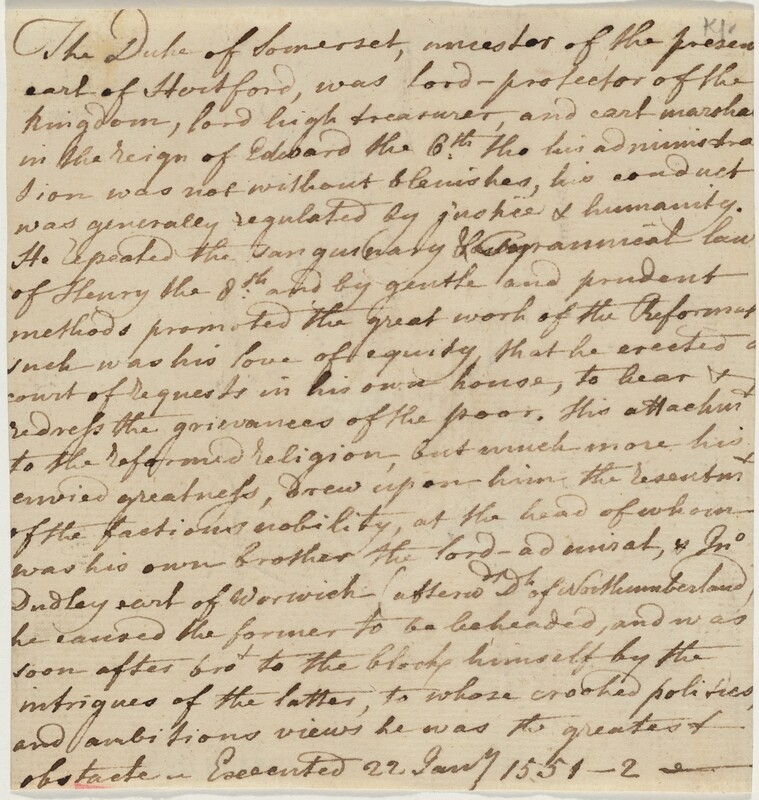 KJ.
The Duke of Somerset, ancestor of the presen
earl of Hertford, was lord-protector of the
kingdom, lord high treasurer, and earl marsha
in the reign of Edward the 6th. tho his administra
tion was not without blemishes, his conduct
was generally regulated by justice & humanity.
He repealed the sanguinary & tyrannical law
of Henry the 8th. and by gentle and prudent
methods promoted the great work of the Reformat
such was his love of equity, that he erected a
court of requests in his own house, to hear &
redress the grievances of the poor. His attachmt
to the reformed religion, but much more his
envied greatness, drew upon him the resentmt
of the factious nobility, at the head of whom
was his own brother the lord-admiral, & Jno
Dudley earl of Warwick (afterwds Dk of Northumberland)
he caused the former to be beheaded, and was
soon after brot to the block himself by the
intrigues of the latter, to whose crooked politics,
and ambitious views he was the greatest
obstacle - Executed 22 Jany 1551-2